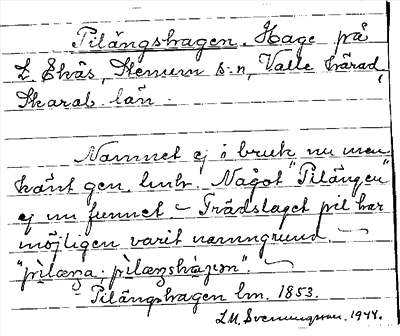 Pilängshagen. Hage på
L. Ekås, Stenum s:n, Valle härad,
Skarab. län.
Namnet ej i bruk nu men
känt gen. lmk. Något "Pilängen"
ej nu funnet. – Trädslaget pil har
möjligen varit namngrund. –
"pìlæŋa: pìlæŋshàgen". –
Pilängshagen lm. 1853.
L.M. Svenungsson. 1944.